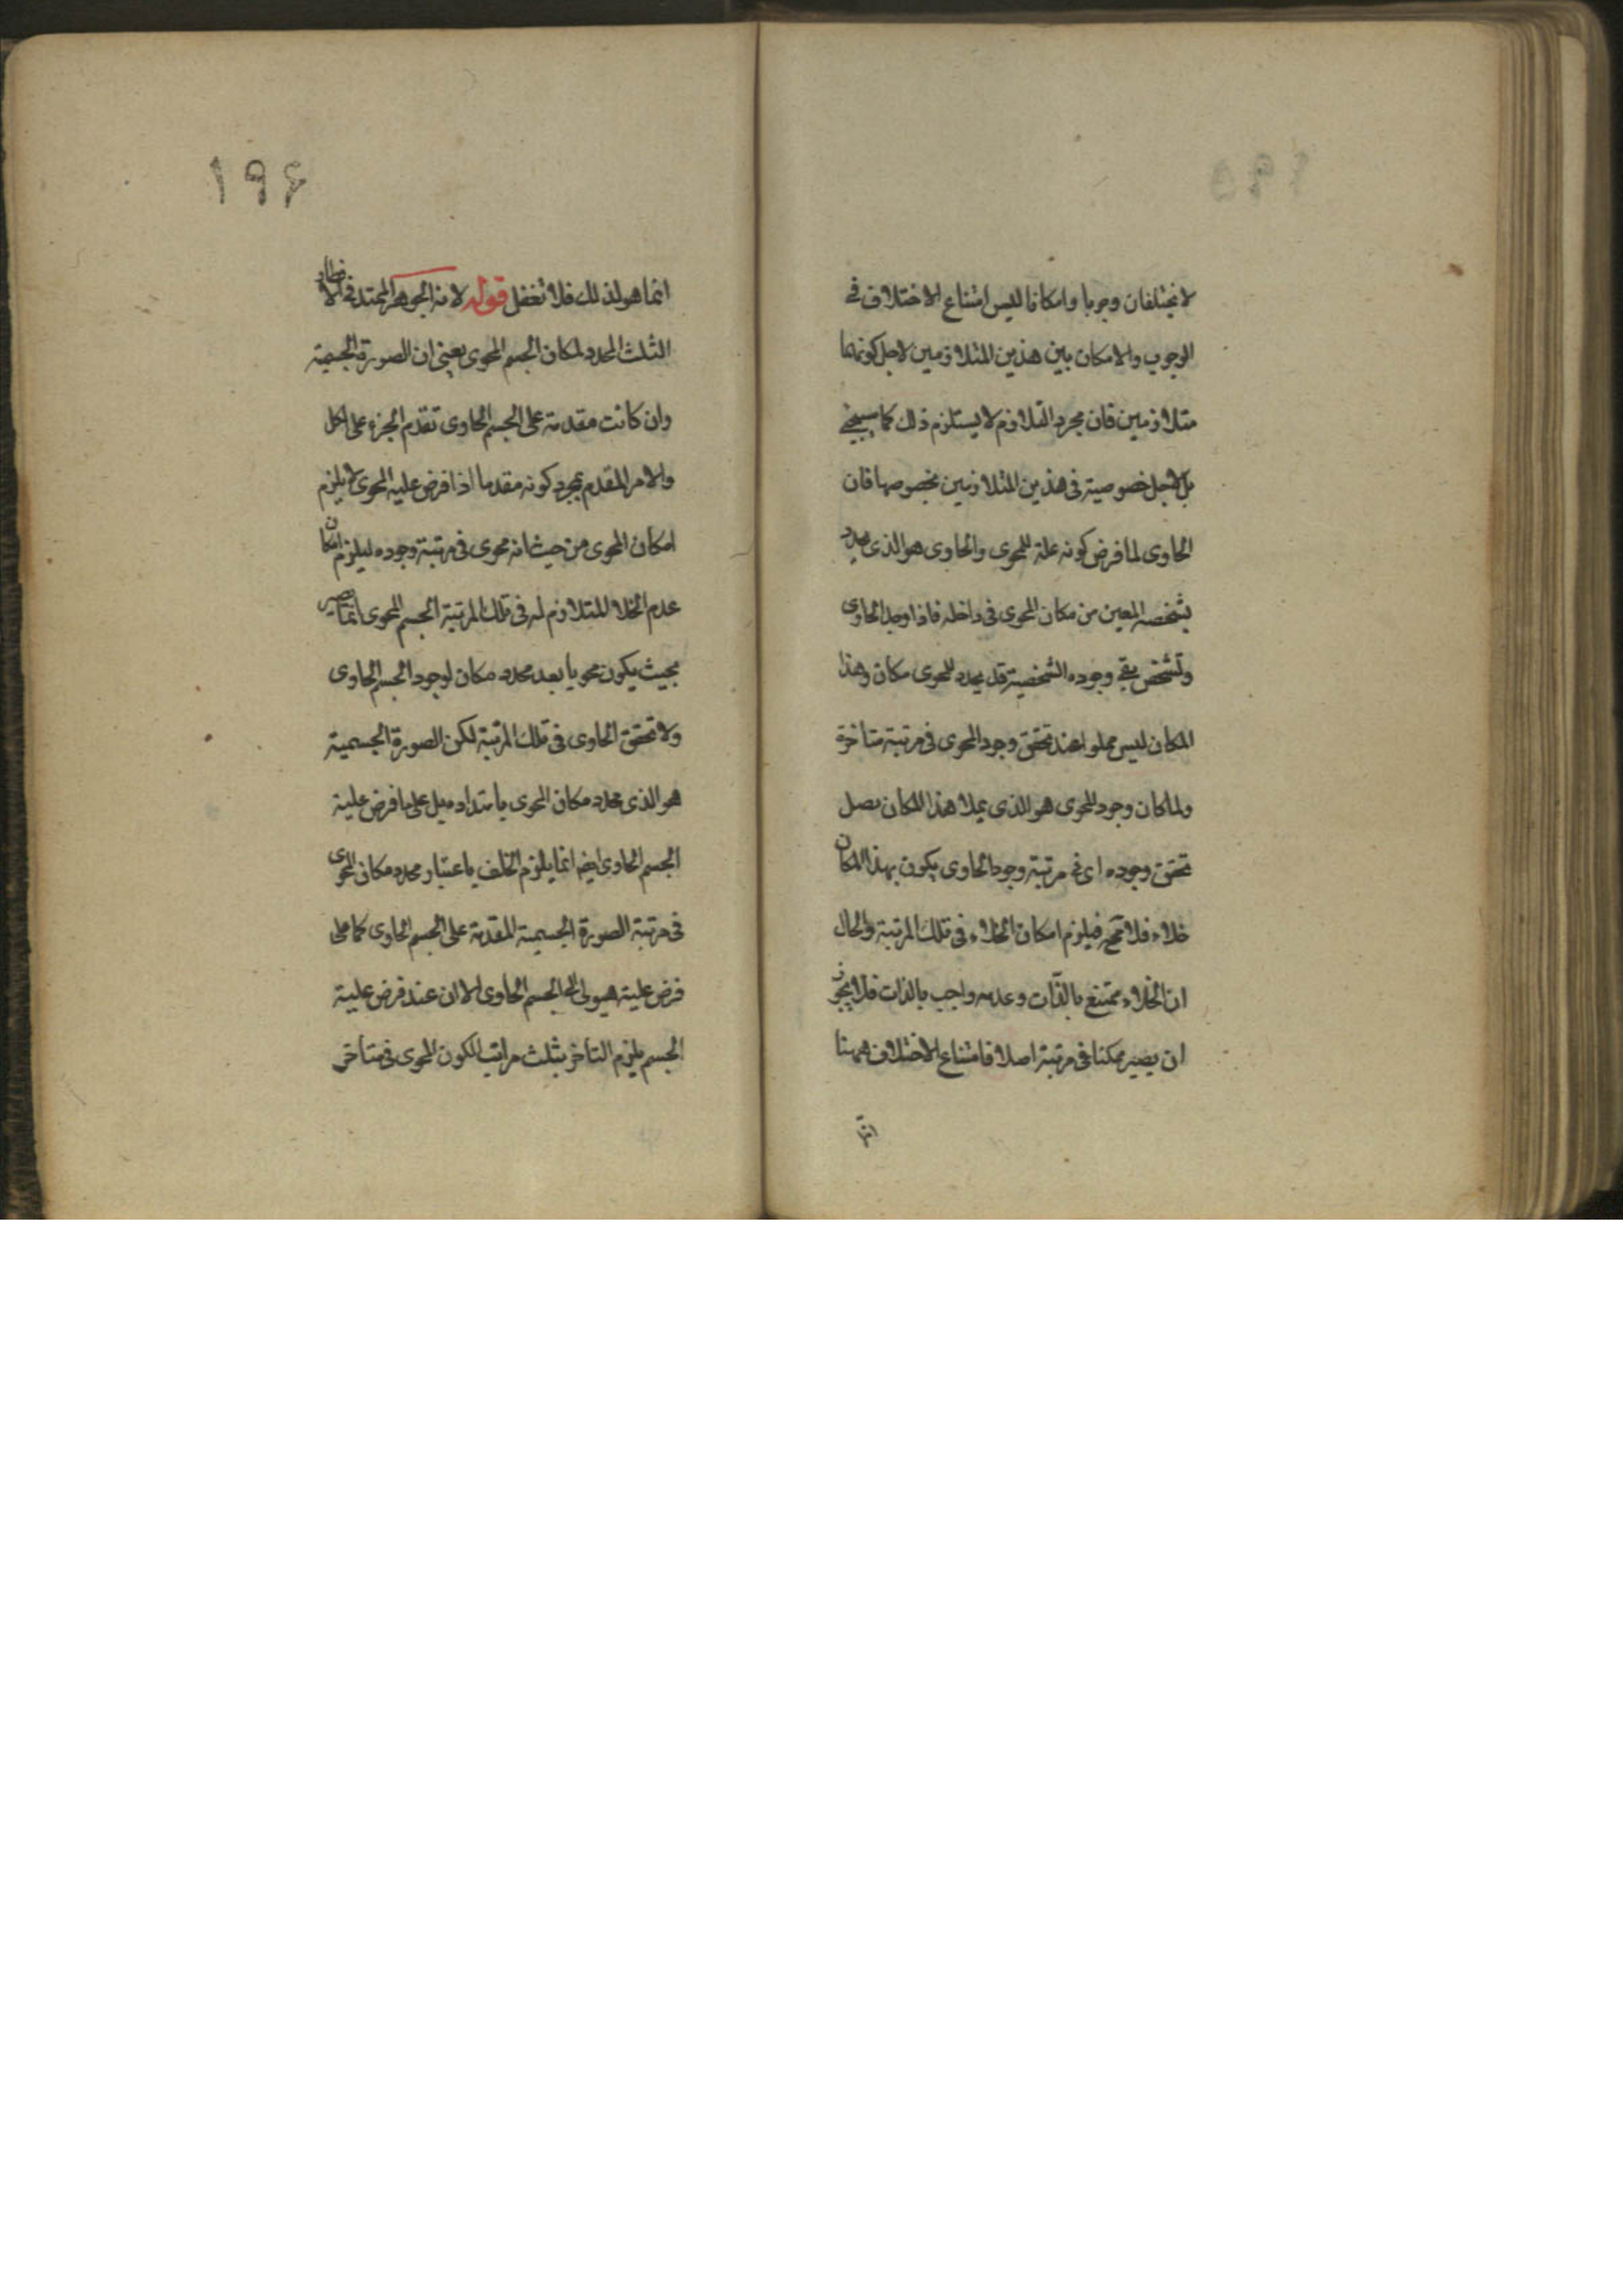 لا يختلفان وجوبا وامكانا ليس امتناع الاختلاف فى
الوجوب والامكان بين هذين المتلازمين لاجل كونهما
متلازمين فان مجرد التلازم لا يستلزم ذلك كما سيجئ
بل لاجل خصوصية فى هذين المتلازمين بخصوصها فان
الحاوى لما فرض كونه علة للمحوى والحاوى هو الذى يحدد
بتشخصه المعين من مكان المحوى فى داخله فاذا وجد الحاوى
وتشخص بقى وجوده الشخصية قد يحدد للمحوى مكان وهذا
المكان ليس مملوا عند تحقق وجود المحوى فى مرتبة متاخرة
ولما كان وجود المحوى هو الذى يملا هذا المكان
تحقق وجوده اى فى مرتبة وجود الحاوى يكون بهذا المكان
خلاء فلا فيلزم امكان الخلاء فى تلك المرتبة والحال
ان الخلاء ممتنع بالذات وعدمه واجب بالذات فلا يجوز
ان يصير ممكنا فى مرتبة اصلا فامتناع الاختلاف ههنا
انما
١٩۶
انما هو لذلك فلا تغفل قوله لانه الجوهر الممتد فى الاقطار
الثلث المحدد لمكان الجسم المحوى يعنى ان الصورة الجسمية
وان كانت مقدمة على الجسم الحاوى تقدم الجزء على الكل
والامر المقدم بمجرد كونه مقدما اذا فرض علية المحوى لا يلزم
امكان المحوى من حيث انه محوى فى مرتبة وجوده ليلزم امكان
عدم الخلا المتلازم له فى تلك المرتبة الجسم المحوى انما يصير
بحيث يكون محويا بعد محدد مكان لوجود الجسم الحاوى
ولا تحقق الحاوى فى تلك المرتبة لكن الصورة الجسمية
هو الذى محدد مكان المحوى بامتداده على ما فرض علية
الجسم الحاوى ايضا انما يلزم الخلف باعتبار محدد مكان المحوى
فى مرتبة الصورة الجسمية المقدمة على الجسم الحاوى كما على
فرض علية هيولى الجسم الحاوى الا ان عند فرض علية
الجسم يلزم التاخر بثلث مراتب لكون المحوى فى متاخر